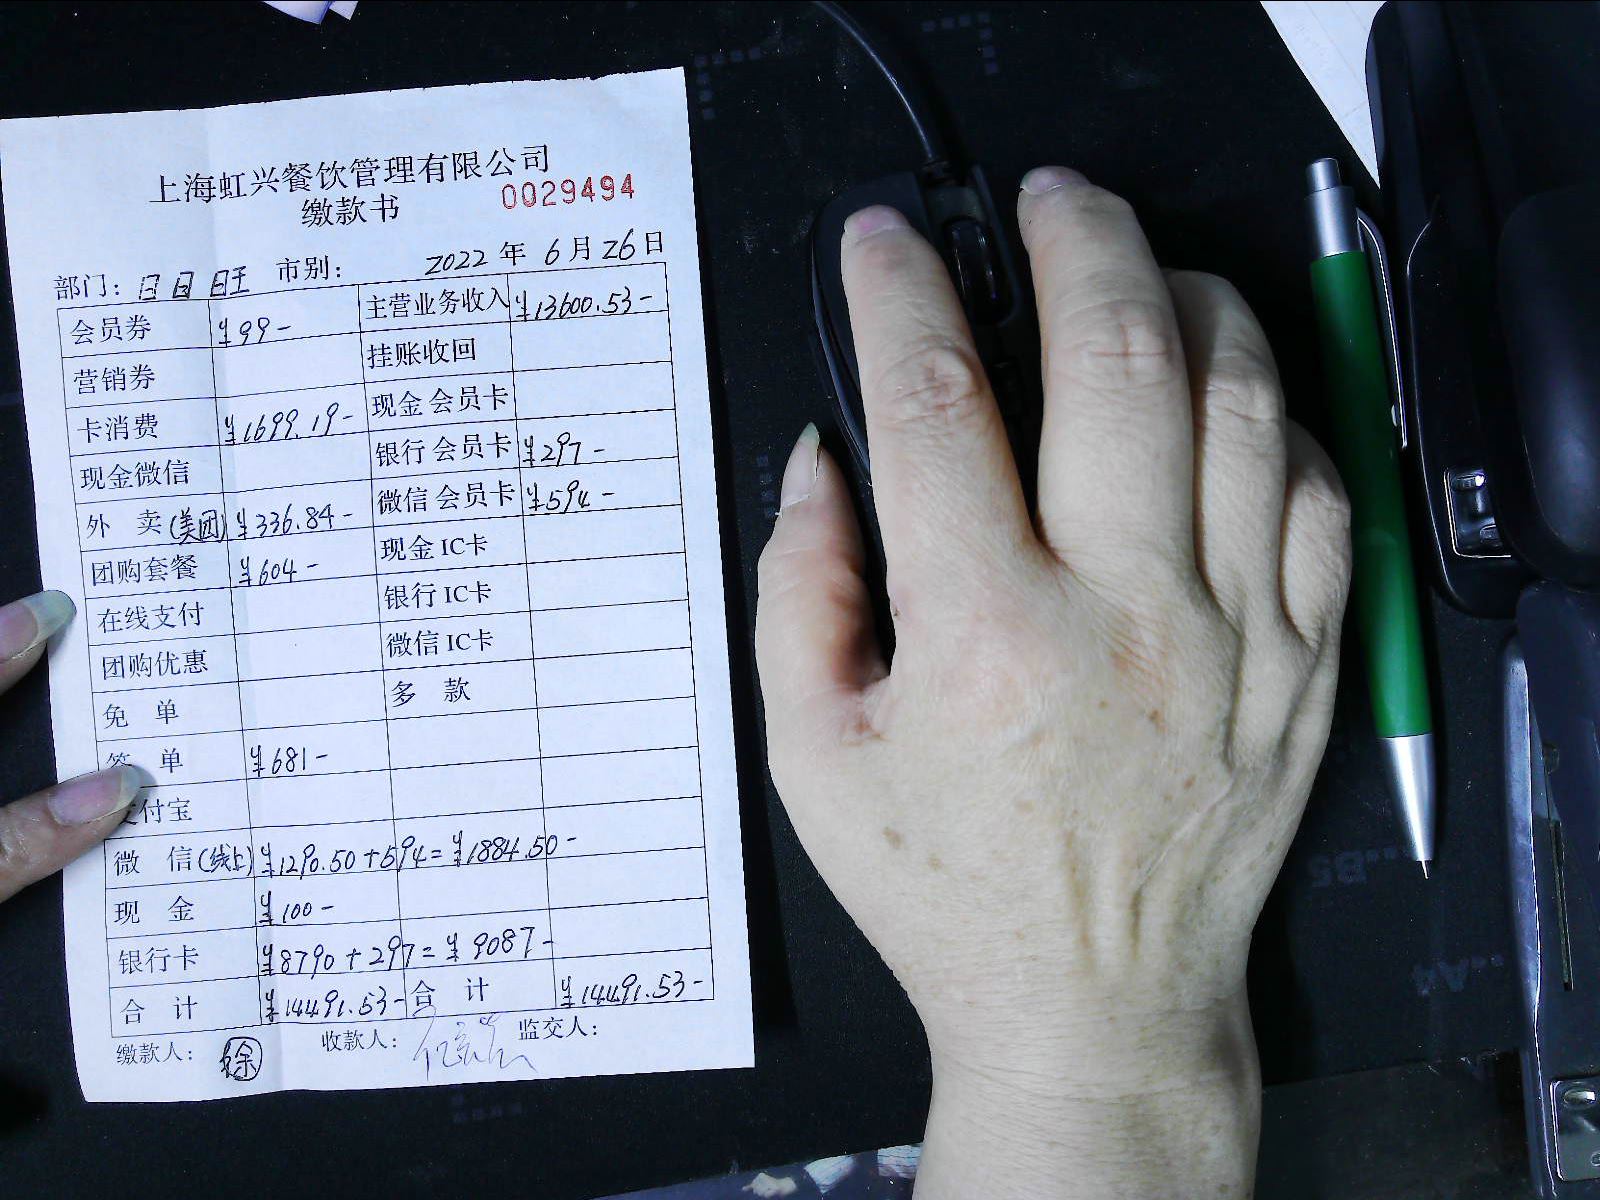 上海虹兴餐饮管理有限公司
缴款书 0029494
部门：日日旺 市别： 2022年6月26日
会员券 ¥99- 主营业务收入 ¥13600.53-
营销券 挂账收回
卡消费 ¥1699.19- 现金会员卡
现金微信 银行会员卡 ¥297-
外 卖(美团) ¥336.84- 微信会员卡 ¥594-
团购套餐 ¥604- 现金IC卡
在线支付 银行IC卡
团购优惠 微信IC卡
免 单 多 款
签 单 ¥681-
支付宝
微 信(线上) ¥1290.50+594=¥1884.50-
现 金 ¥100-
银行卡 ¥8790+297=¥9087-
合 计 ¥14491.53- 合 计 ¥14491.53-
缴款人： 徐 收款人： 监交人：
B5
A4